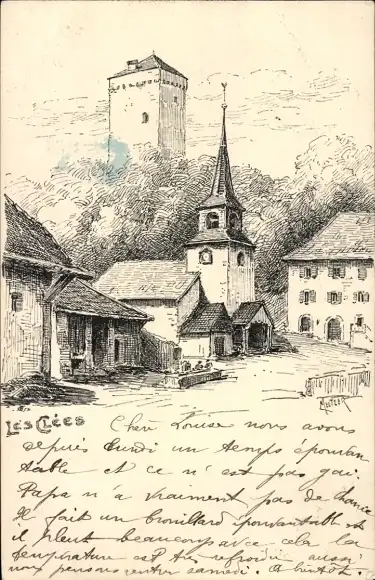 LES CLÉES
Chère Louise nous avons
depuis lundi un temps épouvan
table et ce n'est pas gai.
Papa n'a vraiment pas de chance
Il fait un brouillard épouvantable et
il pleut beaucoup avec cela la
température est très refroidie aussi
nous pensons rentrer samedi. A bientôt.